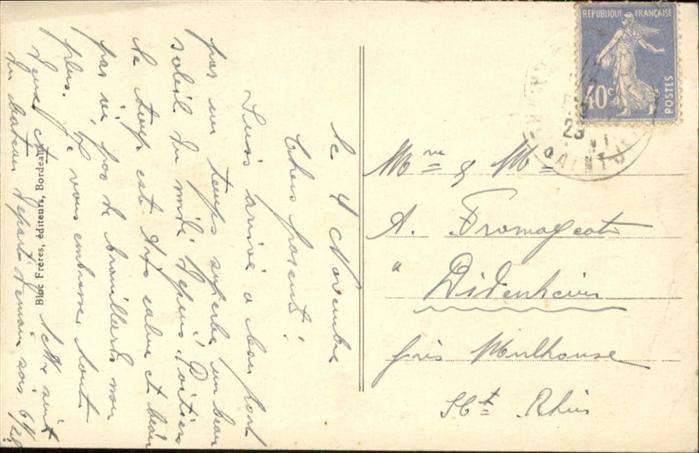 le 4 Novembre
Chers parents!
Suis arrivé à bon port
par un temps superbe un beau
soleil du midi depuis Poitiers
le temps est très calme et beau
par ici, pas de brouillards non
plus. Je vous embrasse tout
Lettre suit
du bateau départ demain soir 6h
Bloc Frères, éditeurs, Bordeaux
RÉPUBLIQUE FRANÇAISE
40c
POSTES
23
Mme & Mr
A. Fromageat
à Didenheim
près Mulhouse
Ht Rhin